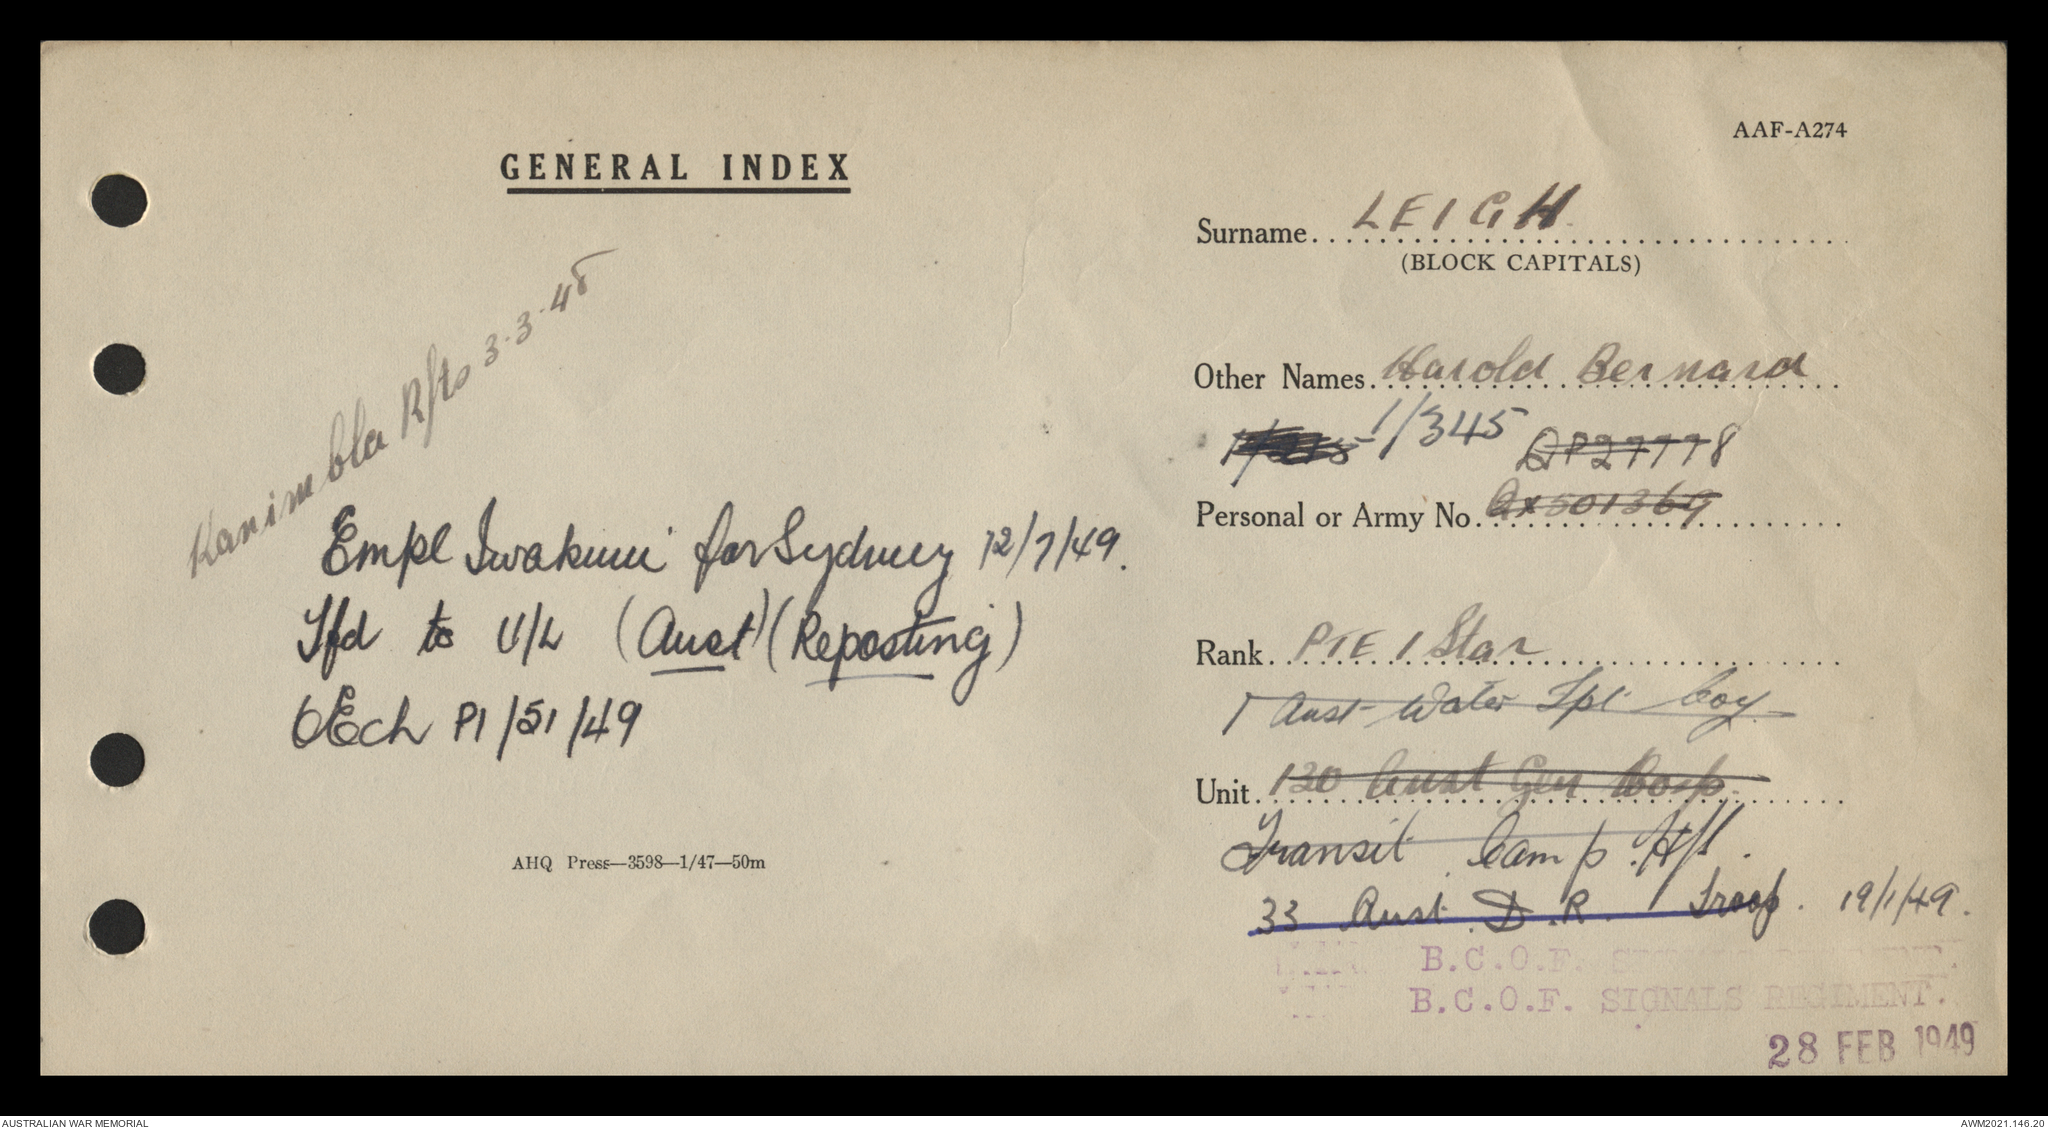 AAF-A274
GENERAL INDEX
Surname LEIGH
(BLOCK CAPITALS)
Kanimbla Rfts 3.3.48
Other Names Harold Bernard
1/345 QP27778
Personal or Army No. QX501369
Empl Iwakuni for Sydney 12/7/49.
Tfd to U/L (Aust) (Reposting)
Ech P1/51/49
Rank PTE 1 Star
1 Aust Water Tpt Coy
Unit 130 Aust Gen Hosp
Transit Camp
33 Aust D.R. Troop. 19/1/49.
AHQ Press—3598—1/47—50m
B.C.O.F. SIGNALS REGIMENT.
B.C.O.F. SIGNALS REGIMENT.
28 FEB 1949
AUSTRALIAN WAR MEMORIAL
AWM2021.146.20